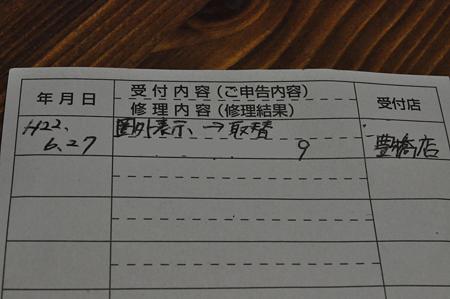 年月日
受付内容(ご申告内容)
修理内容(修理結果)
受付店
H22.
6.27
圏外表示、→取替
9
豊橋店